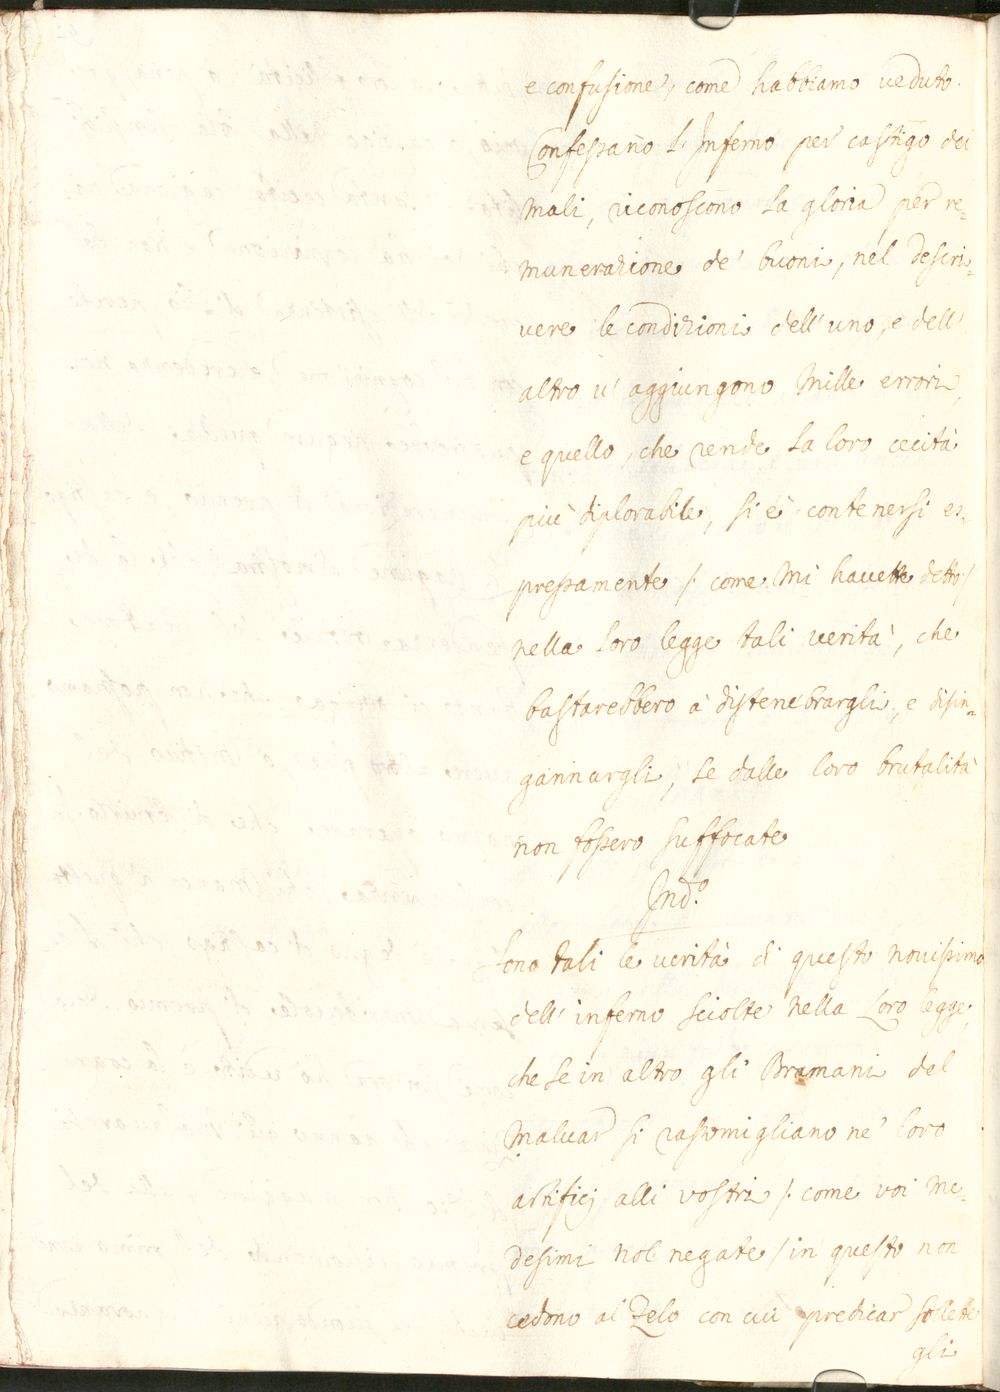 e confusione, come habbiamo veduto.
Confessano l'Inferno per castigo dei
mali, riconoscono la gloria per re=
munerazione de' buoni, nel descri=
vere le condizioni dell'uno, e dell'
altro v'aggiungono mille errori,
e quello, che rende la loro cecità
più diplorabile, si è contenersi es=
pressamente /: come mi havette detto /
nella loro legge tali verità, che
bastarebbero à distenebrargli, e disin=
gannargli, se dalle loro brutalità
non fossero suffocate
Ind.º
Sono tali le verità di questo novissimo
dell'inferno sciolte nella loro legge,
che se in altro gli Bramani del
Malvar si rassomigliano ne' loro
artificij alli vostri /: come voi me=
desimi nol negate / in questo non
cedono al Zelo con cui predicar
gli